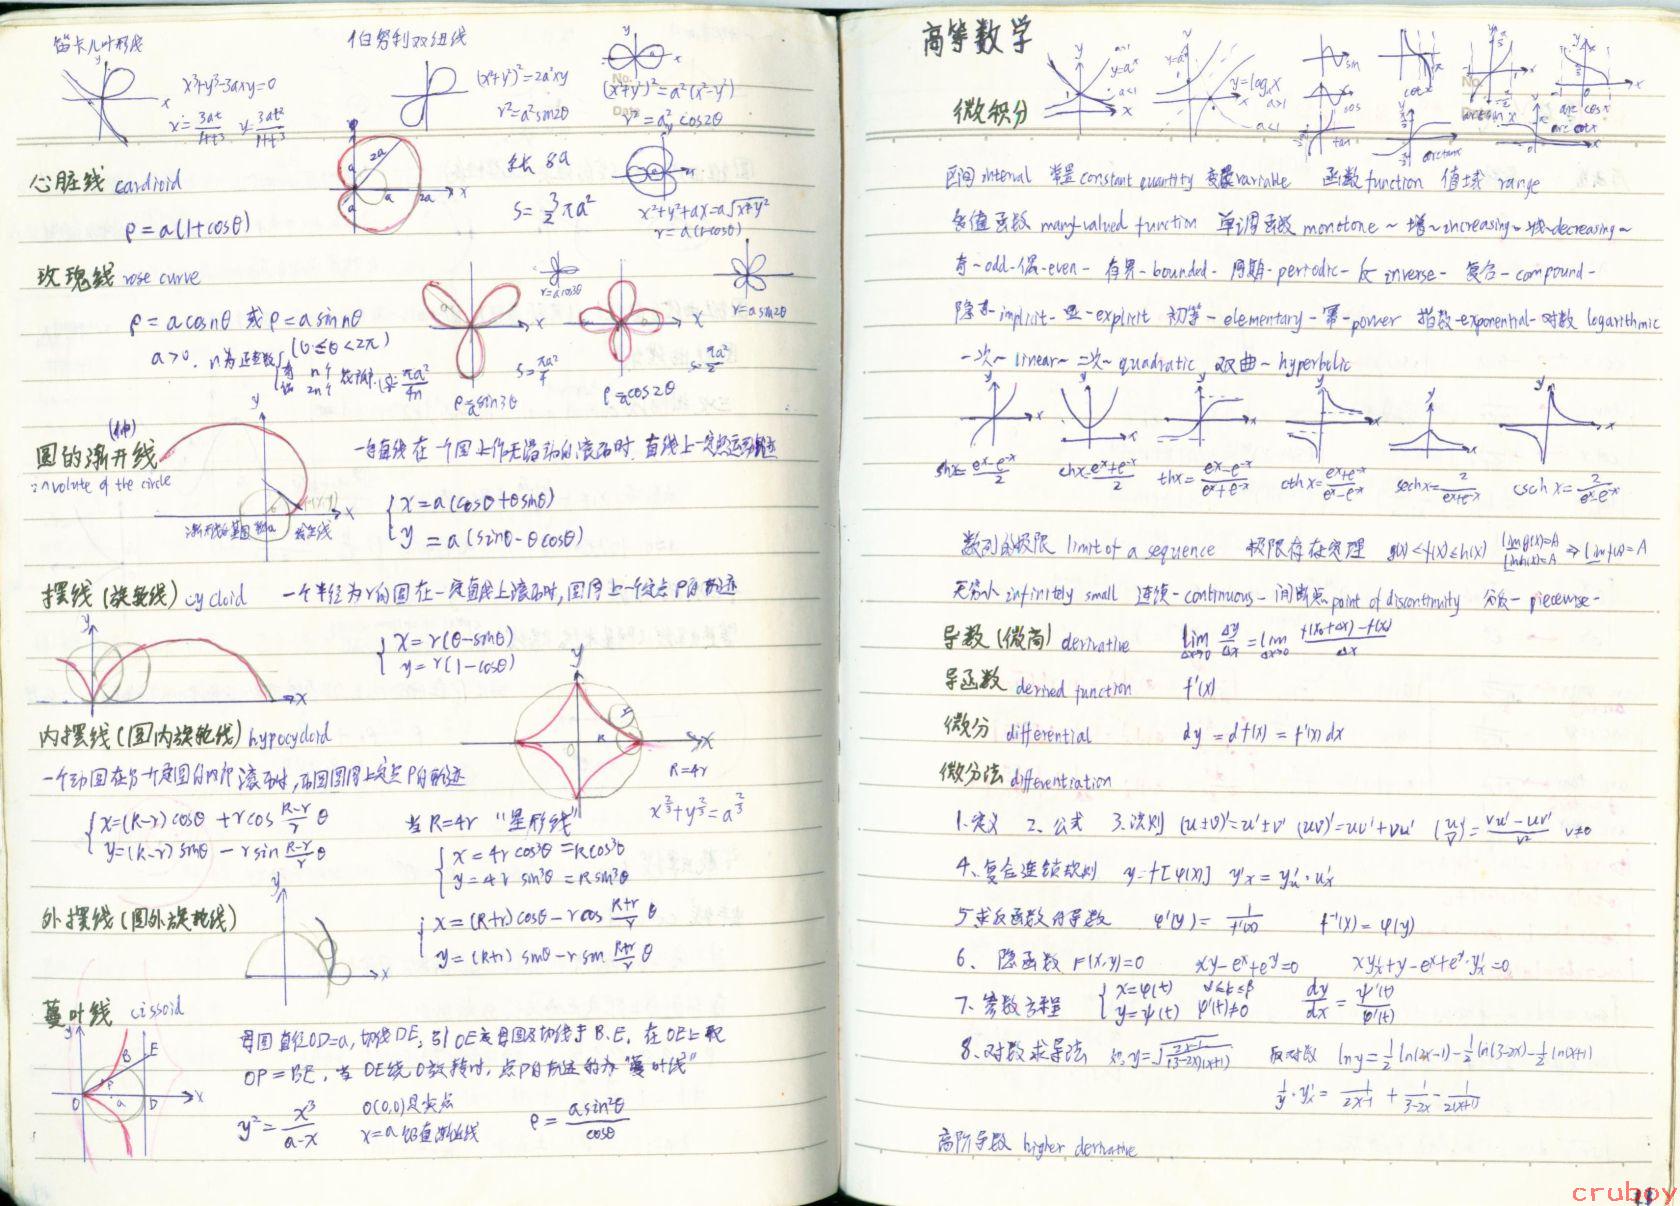 笛卡儿叶形线
x³+y³-3axy=0
x=3at/1+t³ y=3at²/1+t³
伯努利双纽线
(x²+y²)²=2a²xy
r²=a²sin2θ
(x²+y²)²=a²(x²-y²)
r²=a²cos2θ
心脏线 cardioid
ρ=a(1+cosθ)
2a
a
x
8a
S=3/2 πa²
x²+y²+ax=a√x²+y²
r=a(1-cosθ)
玫瑰线 rose curve
ρ=acosnθ 或 ρ=asinnθ
(0≤θ<2π)
a>0. n为正整数
r=acos3θ
r=asin2θ
S=πa²/4
ρ=asin3θ
S=πa²/2
ρ=acos2θ
圆的渐(伸)开线
involute of the circle
一条直线在一个圆上作无滑动的滚动时,直线上一定点运动轨迹
x=a(cosθ+θsinθ)
y=a(sinθ-θcosθ)
摆线(旋轮线) cycloid 一个半径为r的圆在一定直线上滚动时,圆周上一个定点P的轨迹
x=r(θ-sinθ)
y=r(1-cosθ)
内摆线(圆内旋轮线) hypocycloid
一个动圆在另一个定圆的内部滚动时,动圆圆周上定点P的轨迹
R=4r
x^2/3+y^2/3=a^2/3
x=(R-r)cosθ+rcos R-r/r θ
y=(R-r)sinθ-rsin R-r/r θ
当R=4r "星形线"
x=4rcos³θ=Rcos³θ
y=4rsin³θ=Rsin³θ
外摆线(圆外旋轮线)
x=(R+r)cosθ-rcos R+r/r θ
y=(R+r)sinθ-rsin R+r/r θ
蔓叶线 cissoid
母圆直径OD=a,切线DE,引OE交母圆及切线于B.E,在OE上取
OP=BE,当OE绕O旋转时,点P的轨迹的为"蔓叶线"
y²=x³/a-x
O(0,0)是尖点
x=a 的直渐近线
ρ=asin²θ/cosθ
高等数学
微积分
y=aˣ
a>1
a<1
y=logₐx
a>1
a<1
sin
cos
tan
cotx
arcsinx
arccosx
arctanx
arccotx
区间 interval 常量 constant quantity 变量 variable 函数 function 值域 range
多值函数 many-valued function 单调函数 monotone ~ 增~increasing~ 减~decreasing~
奇~odd-偶-even- 有界-bounded- 周期-periodic- 反 inverse- 复合-compound-
隐-implicit- 显-explicit 初等-elementary-幂-power 指数-exponential-对数 logarithmic
一次~linear~二次~quadratic 双曲~hyperbolic
shx=eˣ-e⁻ˣ/2 chx=eˣ+e⁻ˣ/2 thx=eˣ-e⁻ˣ/eˣ+e⁻ˣ cthx=eˣ+e⁻ˣ/eˣ-e⁻ˣ sechx=2/eˣ+e⁻ˣ cschx=2/eˣ-e⁻ˣ
数列的极限 limit of a sequence 极限存在定理 g(x)≤f(x)≤h(x) lim g(x)=A lim h(x)=A ⇒ lim f(x)=A
无穷小 infinitely small 连续-continuous-间断点 point of discontinuity 分段-piecewise-
导数(微商) derivative lim Δx→0 Δy/Δx=lim Δx→0 f(x₀+Δx)-f(x₀)/Δx
导函数 derived function f'(x)
微分 differential dy=df(x)=f'(x)dx
微分法 differentiation
1.定义 2.公式 3.法则 (u±v)'=u'±v' (uv)'=uv'+vu' (u/v)'=vu'-uv'/v² v≠0
4.复合连锁规则 y=f[φ(x)] y'x=y'u·u'x
5.求反函数的导数 φ'(y)=1/f'(x) f⁻¹(x)=φ(y)
6.隐函数 F(x,y)=0 xy-eˣ+eʸ=0 xy'x+y-eˣ+eʸ·y'x=0
7.参数方程 x=φ(t) y=ψ(t) α≤t≤β φ'(t)≠0 dy/dx=ψ'(t)/φ'(t)
8.对数求导法 如y=√2x-1/(3-2x)(x+1) 取对数 lny=1/2ln(2x-1)-1/2ln(3-2x)-1/2ln(x+1)
1/y·y'x=1/2x-1+1/3-2x-1/2(x+1)
高阶导数 higher derivative
cruboy